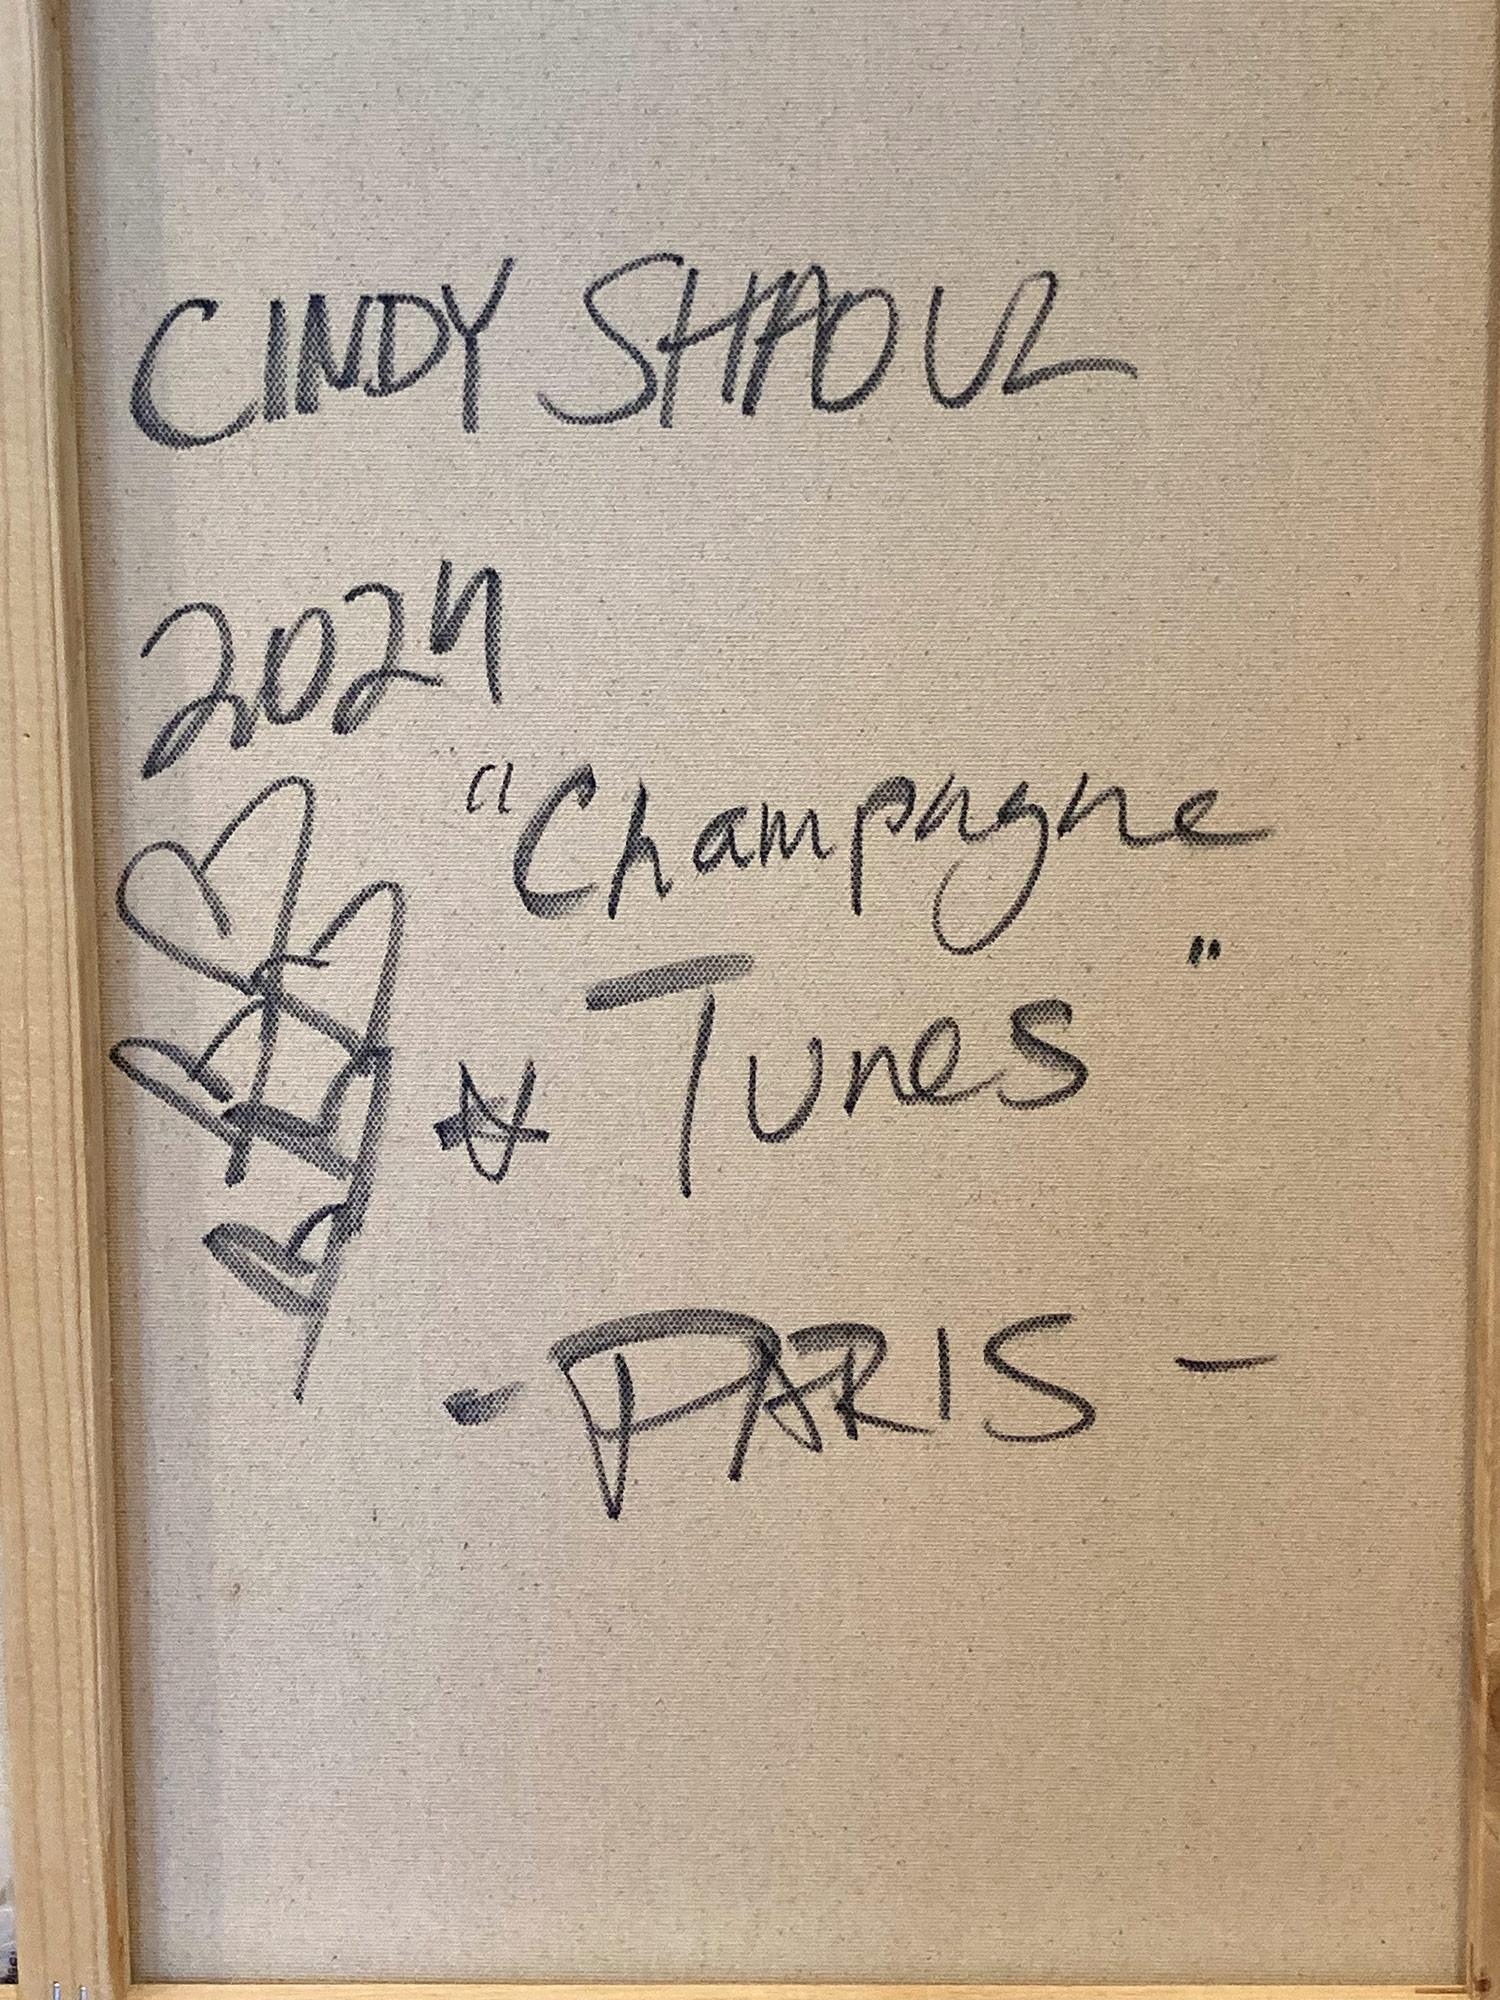 CINDY SHAOUL
2024
"Champagne
Tunes"
- PARIS -